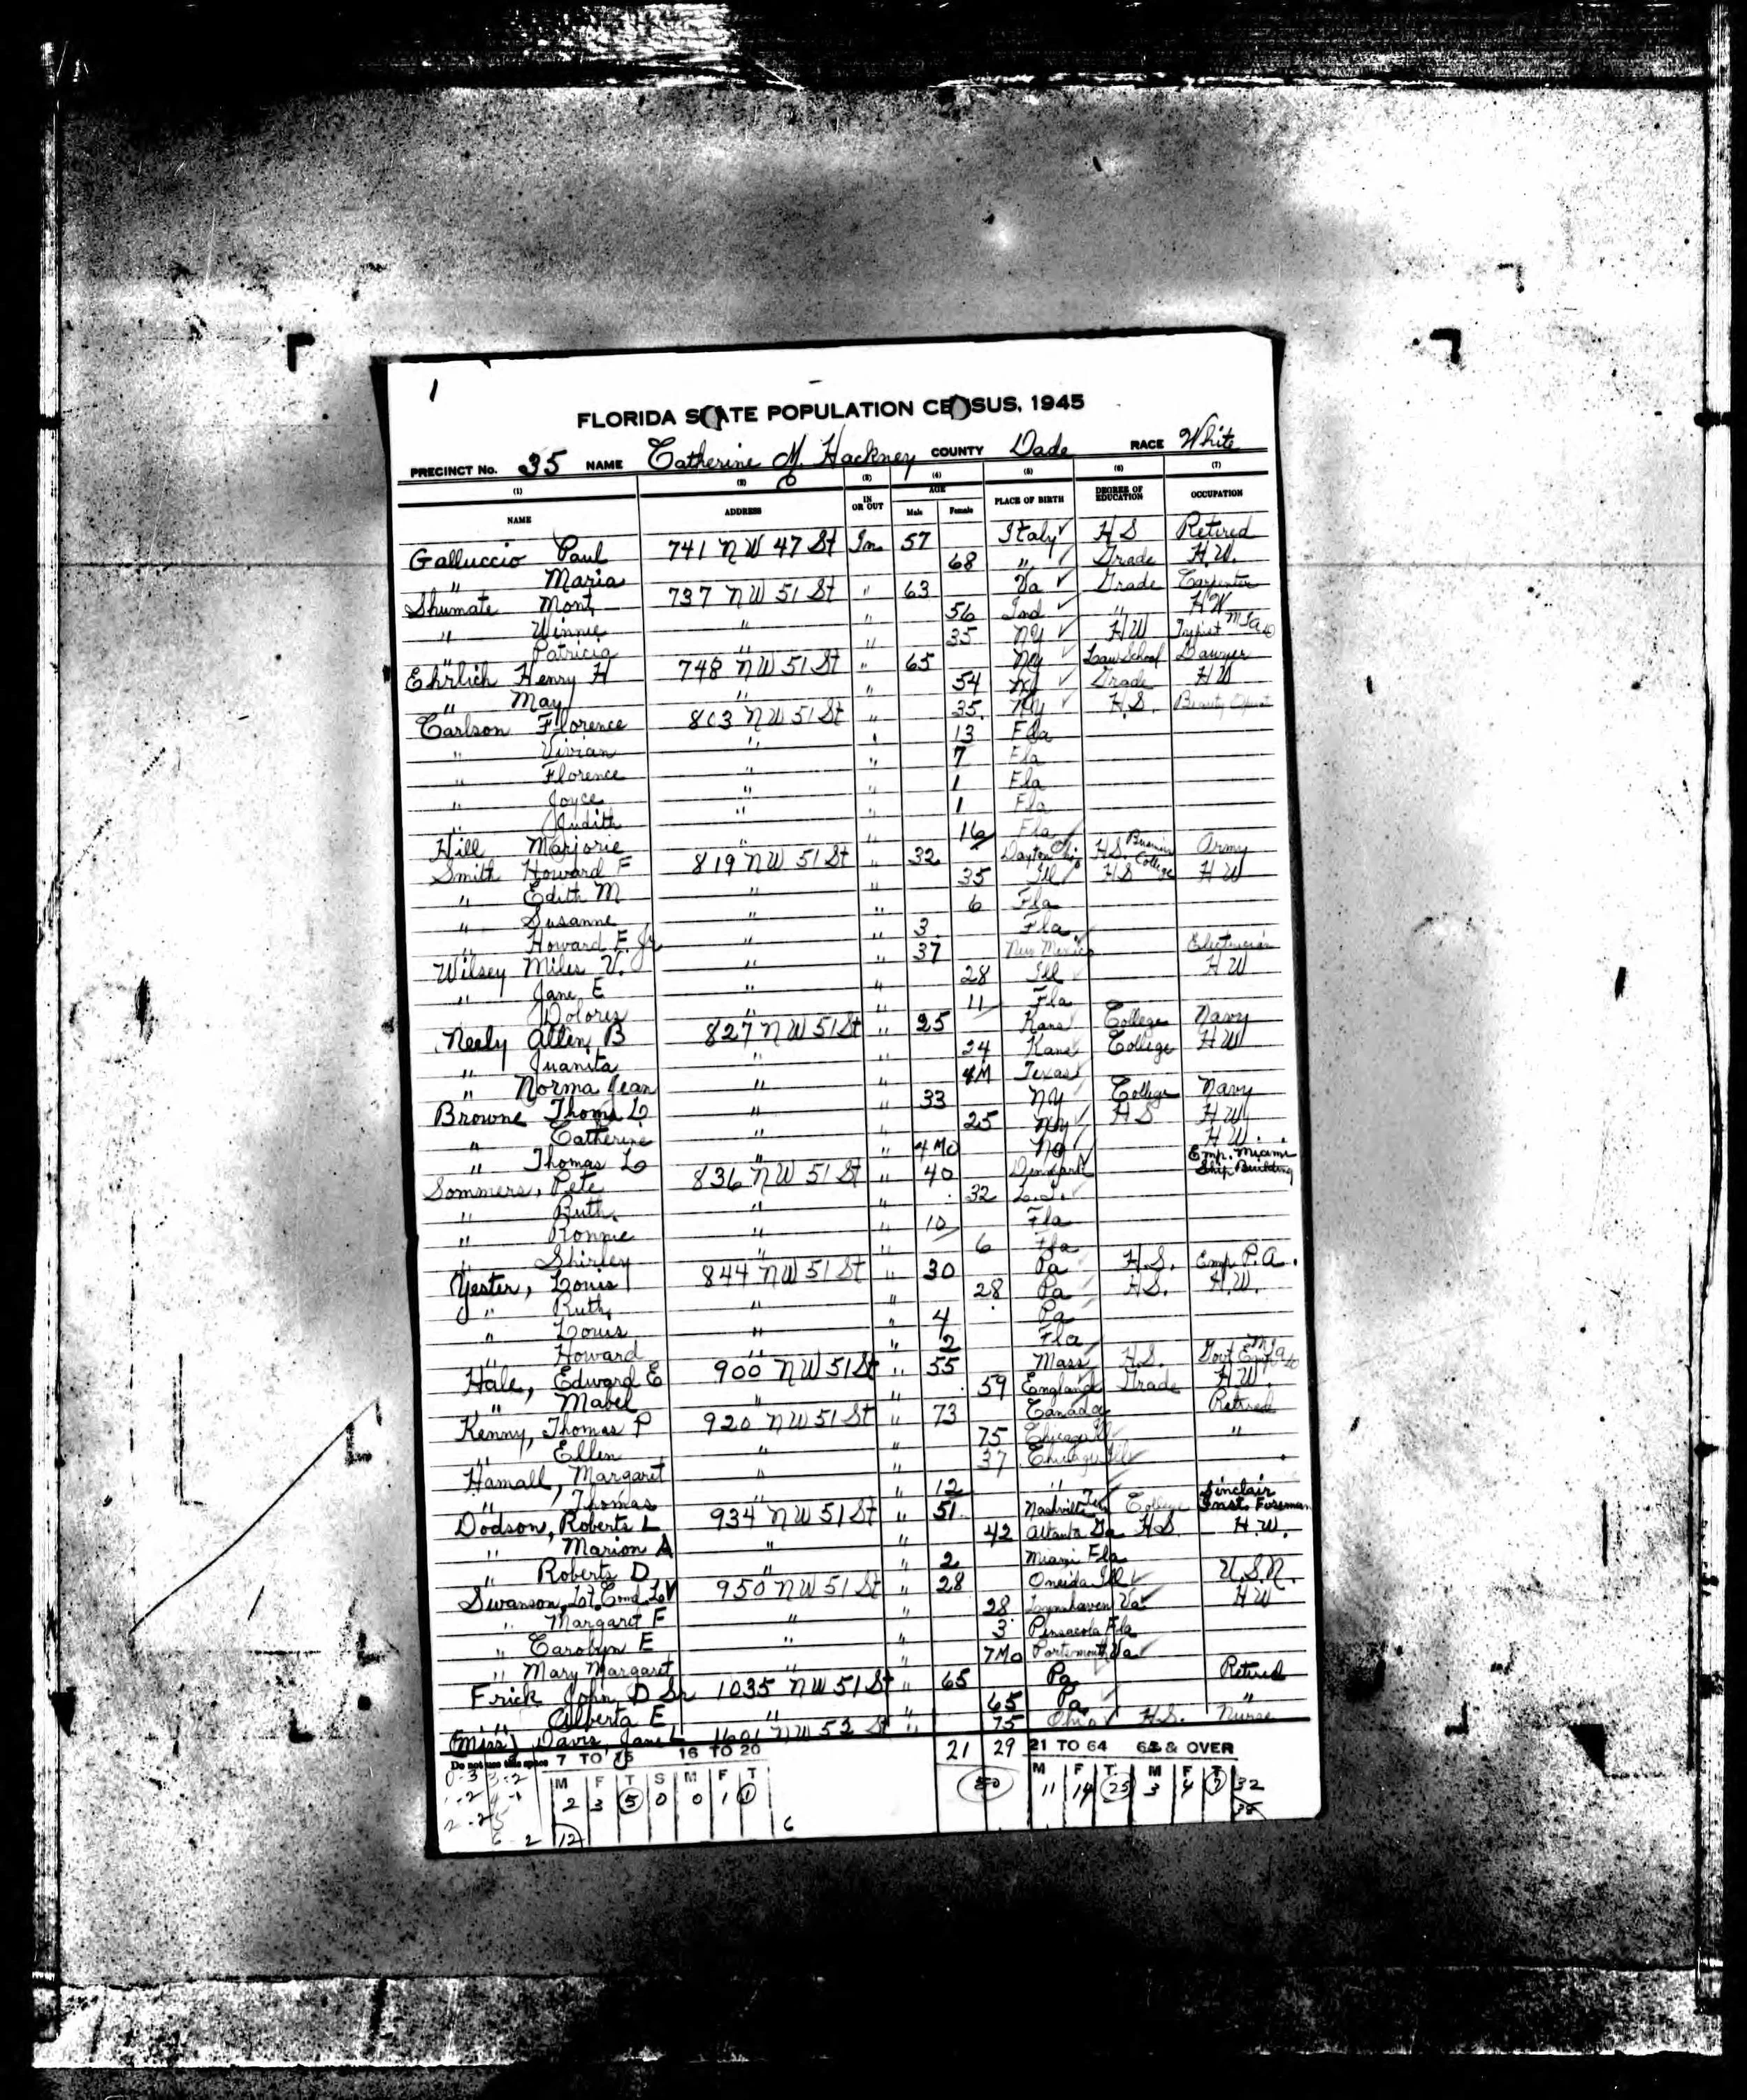 1
FLORIDA STATE POPULATION CENSUS, 1945
PRECINCT No. 35 NAME Catherine M. Hackney COUNTY Dade RACE White
(1) (2) (3) (4) (5) (6) (7)
NAME ADDRESS IN OR OUT AGE Male Female PLACE OF BIRTH DEGREE OF EDUCATION OCCUPATION
Galluccio Paul 741 NW 47 St In 57 Italy H S Retired
" Maria 68 " Grade H.W.
Shumate Mont 737 NW 51 St " 63 Va Grade Carpenter
" Winnie " " 56 Ind " HW
" Patricia " " 35 NY HW Typist
Ehrlich Henry H 748 NW 51 St " 65 NY Law School Lawyer
" May " " 54 Grade HW
Carlson Florence 803 NW 51 St " 35 NY H.S. Beauty
" Vivian " " 13 Fla
" Florence " " 7 Fla
" Joyce " " 1 Fla
" Judith " " 1 Fla
Hill Marjorie " " 16 Fla
Smith Howard F 819 NW 51 St " 32 Dayton Ohio H.S. Business College Army
" Edith M " " 35 Ill HS College HW
" Susanne " " 6 Fla
" Howard F. Jr " " 3 Fla
Wilsey Miles V. " " 37 New Mexico Electrician
" Jane E " " 28 Ill HW
" Dolores " " 11 Fla
Neely Allen B 827 NW 51 St " 25 Kans College Navy
" Juanita " " 24 Kans College HW
" Norma Jean " " 4M Texas
Browne Thoms L " " 33 NY College Navy
" Catherine " " 25 NY HS HW
" Thomas L " " 4 Mo HW.
Sommers, Pete 836 NW 51 St " 40 Denmark Emp. Miami Ship Building
" Ruth " " 32
" Ronnie " " 10 Fla
" Shirley " " 6 Fla
Yester, Louis 844 NW 51 St " 30 Pa H.S. Emp. P.A.
" Ruth " " 28 Pa HS. H.W.
" Louis " " 4 Pa
" Howard " " 2 Fla
Hale, Edward E 900 NW 51 St " 55 Mass H.S. Govt Emp
" Mabel " " 59 England Grade H.W.
Kenny, Thomas P 920 NW 51 St " 73 Canada Retired
" Ellen " " 75 Chicago Ill "
Hamall, Margaret " " 37 Chicago Ill
" Thomas " " 12 "
Dodson, Roberts L 934 NW 51 St " 51 Nashville Ten College Sinclair Inst. Foreman
" Marion A " " 42 Atlanta Ga H.S. H.W.
" Roberts D " " 2 Miami Fla
Swanson, Lt. Comd. L V 950 NW 51 St " 28 Oneida Ill U.S.N.
" Margaret F " " 28 Lynnhaven Va HW
" Carolyn E " " 3 Pensacola Fla
" Mary Margaret " " 7 Mo Portsmouth Va
Frick John D Sr 1035 NW 51 St " 65 Pa Retired
" Alberta E " " 65 Pa "
(Miss) Davis, Jane L 1601 NW 52 St " 75 Ohio H.S. Nurse
Do not use this space 7 TO 15 16 TO 20 21 29 21 TO 64 65 & OVER
M F T S M F T 50 M F T M F T
2 3 5 0 0 1 1 11 14 25 3 4 7 32
0-3 3-2
1-2 4-1
2-2 5
6-2 12 6